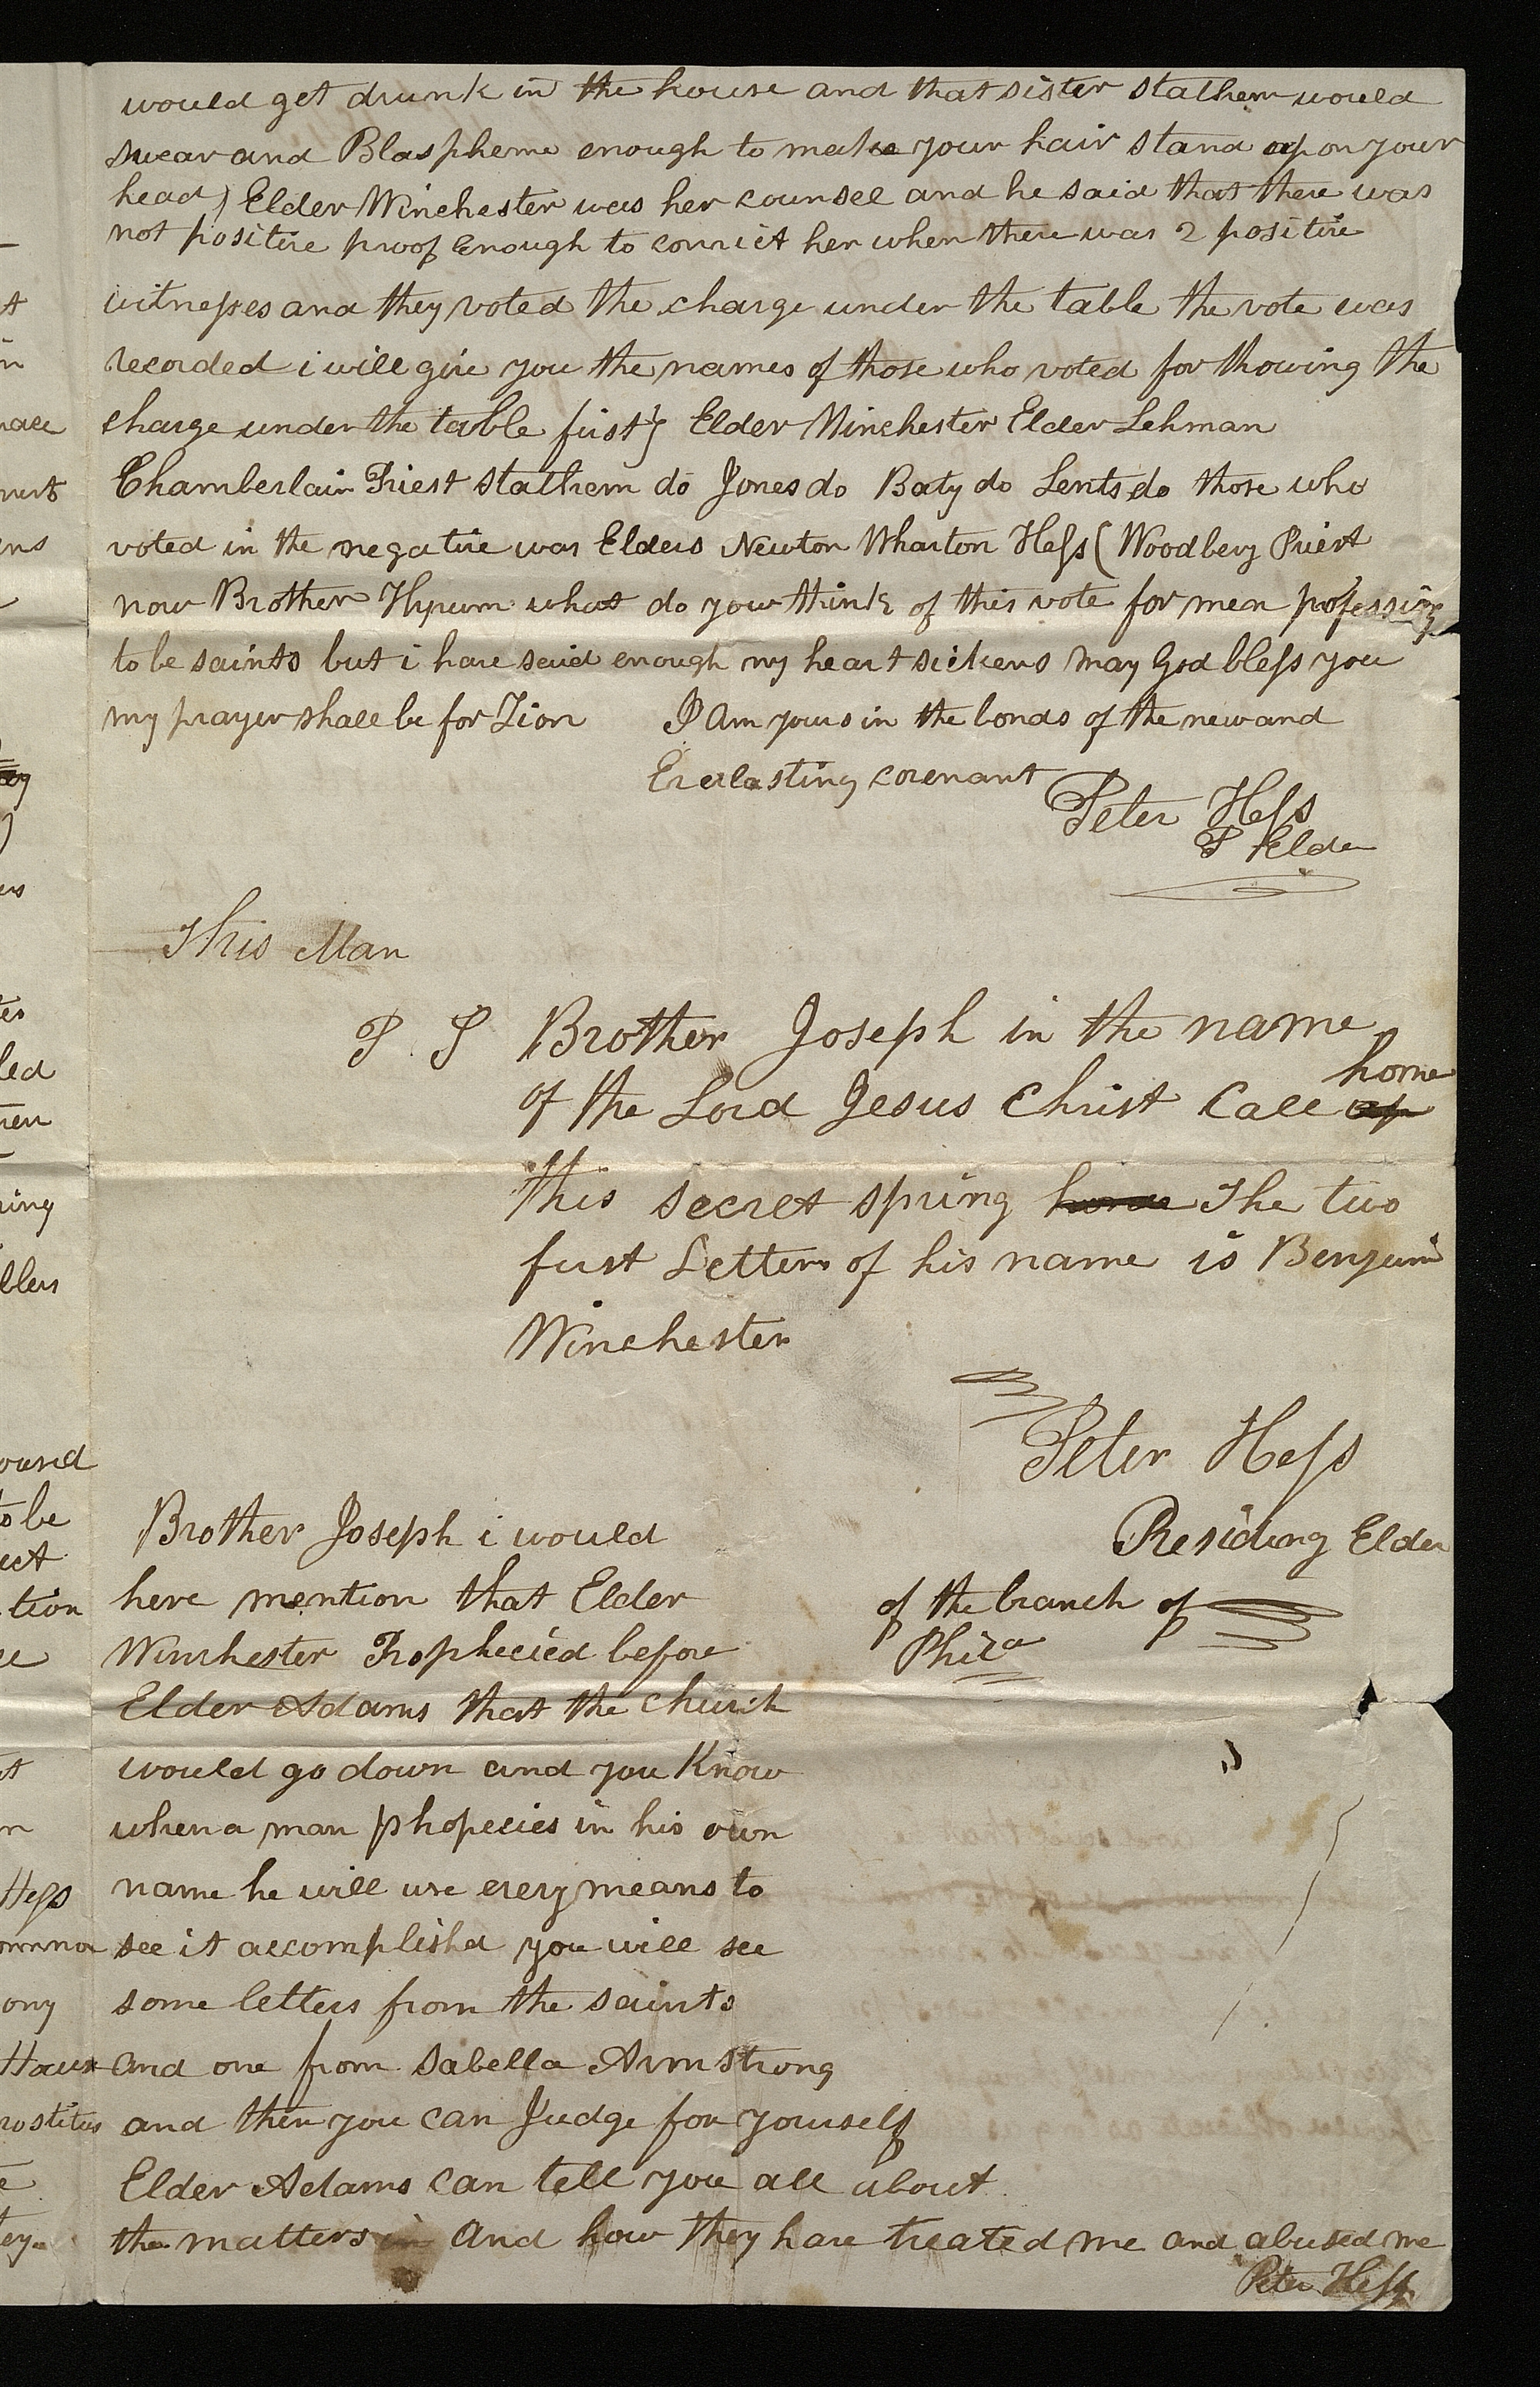 would get drunk in the house and that sister Stathem would
swear and Blaspheme enough to make your hair stand up on your
head) Elder Winchester was her counsel and he said that there was
not positive proof Enough to convict her when there was 2 positive
witnesses and they voted the charge under the table the vote was
recorded i will give you the names of those who voted for thowing the
charge under the table first} Elder Winchester Elder Lehman
Chamberlain Priest Stathem do Jones do Baty do Lents do those who
voted in the negative was Elders Newton Wharton Hess (Woodbery Priest
now Brother Hyrum what do you think of this vote for men professing
to be saints but i have said enough my heart sickens may God bless you
my prayer shall be for Zion I Am yours in the bonds of the new and
Everlasting covenant
Peter Hess
P Elder
This Man
P. S Brother Joseph in the name
home
of the Lord Jesus Christ Call up
this secret spring home The two
first Letters of his name is Benjamin
Winchester
Peter Hess
Residing Elder
of the branch of
Phila
Brother Joseph i would
here mention that Elder
Winchester Prophecied before
Elder Adams that the church
would go down and you Know
when a man phopecies in his own
name he will use every means to
see it accomplished you will see
some letters from the saints
and one from Sabella Armstrong
and then you can Judge for yourself
Elder Adams can tell you all about
the matters in and how they have treated me and abused me
Peter Hess